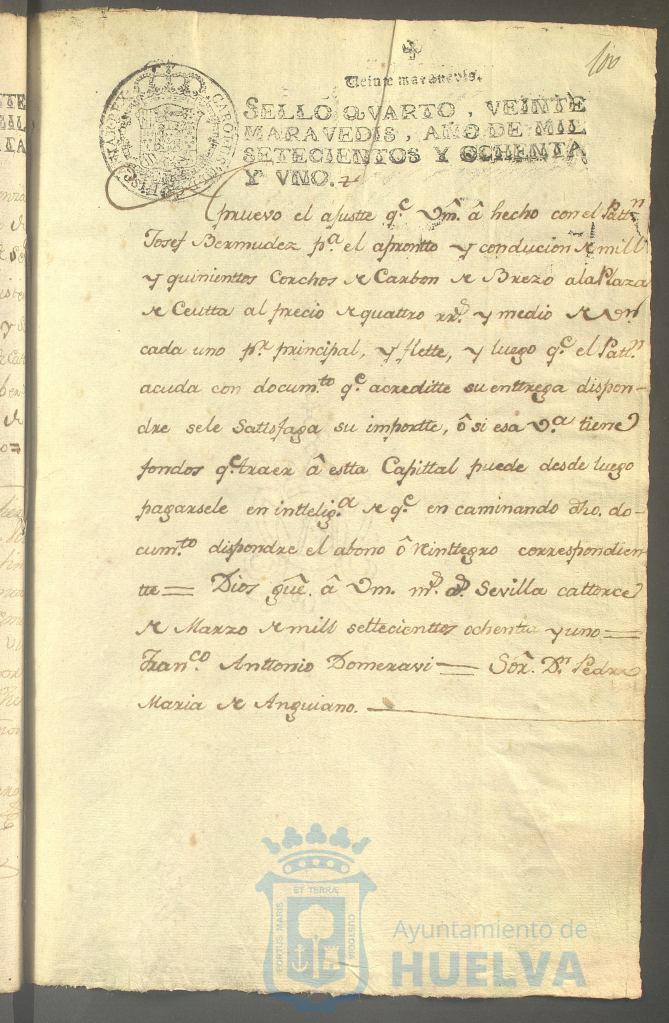 100
Veinte maravedis.
SELLO QVARTO, VEINTE
MARAVEDIS, AÑO DE MIL
SETECIENTOS Y OCHENTA
Y VNO.
Apruevo el ajustte q.e Vm. â hecho con el Patt.n
Josef Bermudez p.a el aprontto y conducion de mill
y quinienttos Corchos de Carbon de Brezo a la Plaza
de Ceutta al precio de quattro rr.s y medio de v.n
cada uno p.r principal, y flette, y luego q.e el Patt.n
acuda con docum.to q.e acreditte su enttrega dispon-
dre sele Sattsfaga su importte, ô si esa V.a tiene
fondos q.e traer â estta Capittal puede desde luego
pagarsele en inttelig.a de q.e en caminando dho. do-
cum.to dispondre el abono ô Reinttegro correspondien-
tte = Dios gûe. â Vm. m.s a.s Sevilla cattorce
de Marzo de mill settecienttos ochenta y uno =
Fran.co Anttonio Domezavi = Sôr. D.n Pedro
Maria de Anguiano.
ET TERRÆ
PORTUS MARIS
CUSTODIA
Ayuntamiento de
HUELVA